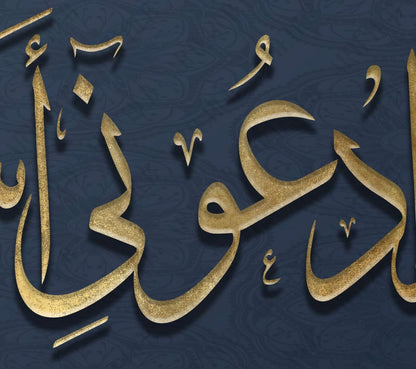 ادْعُونِي أَسْ